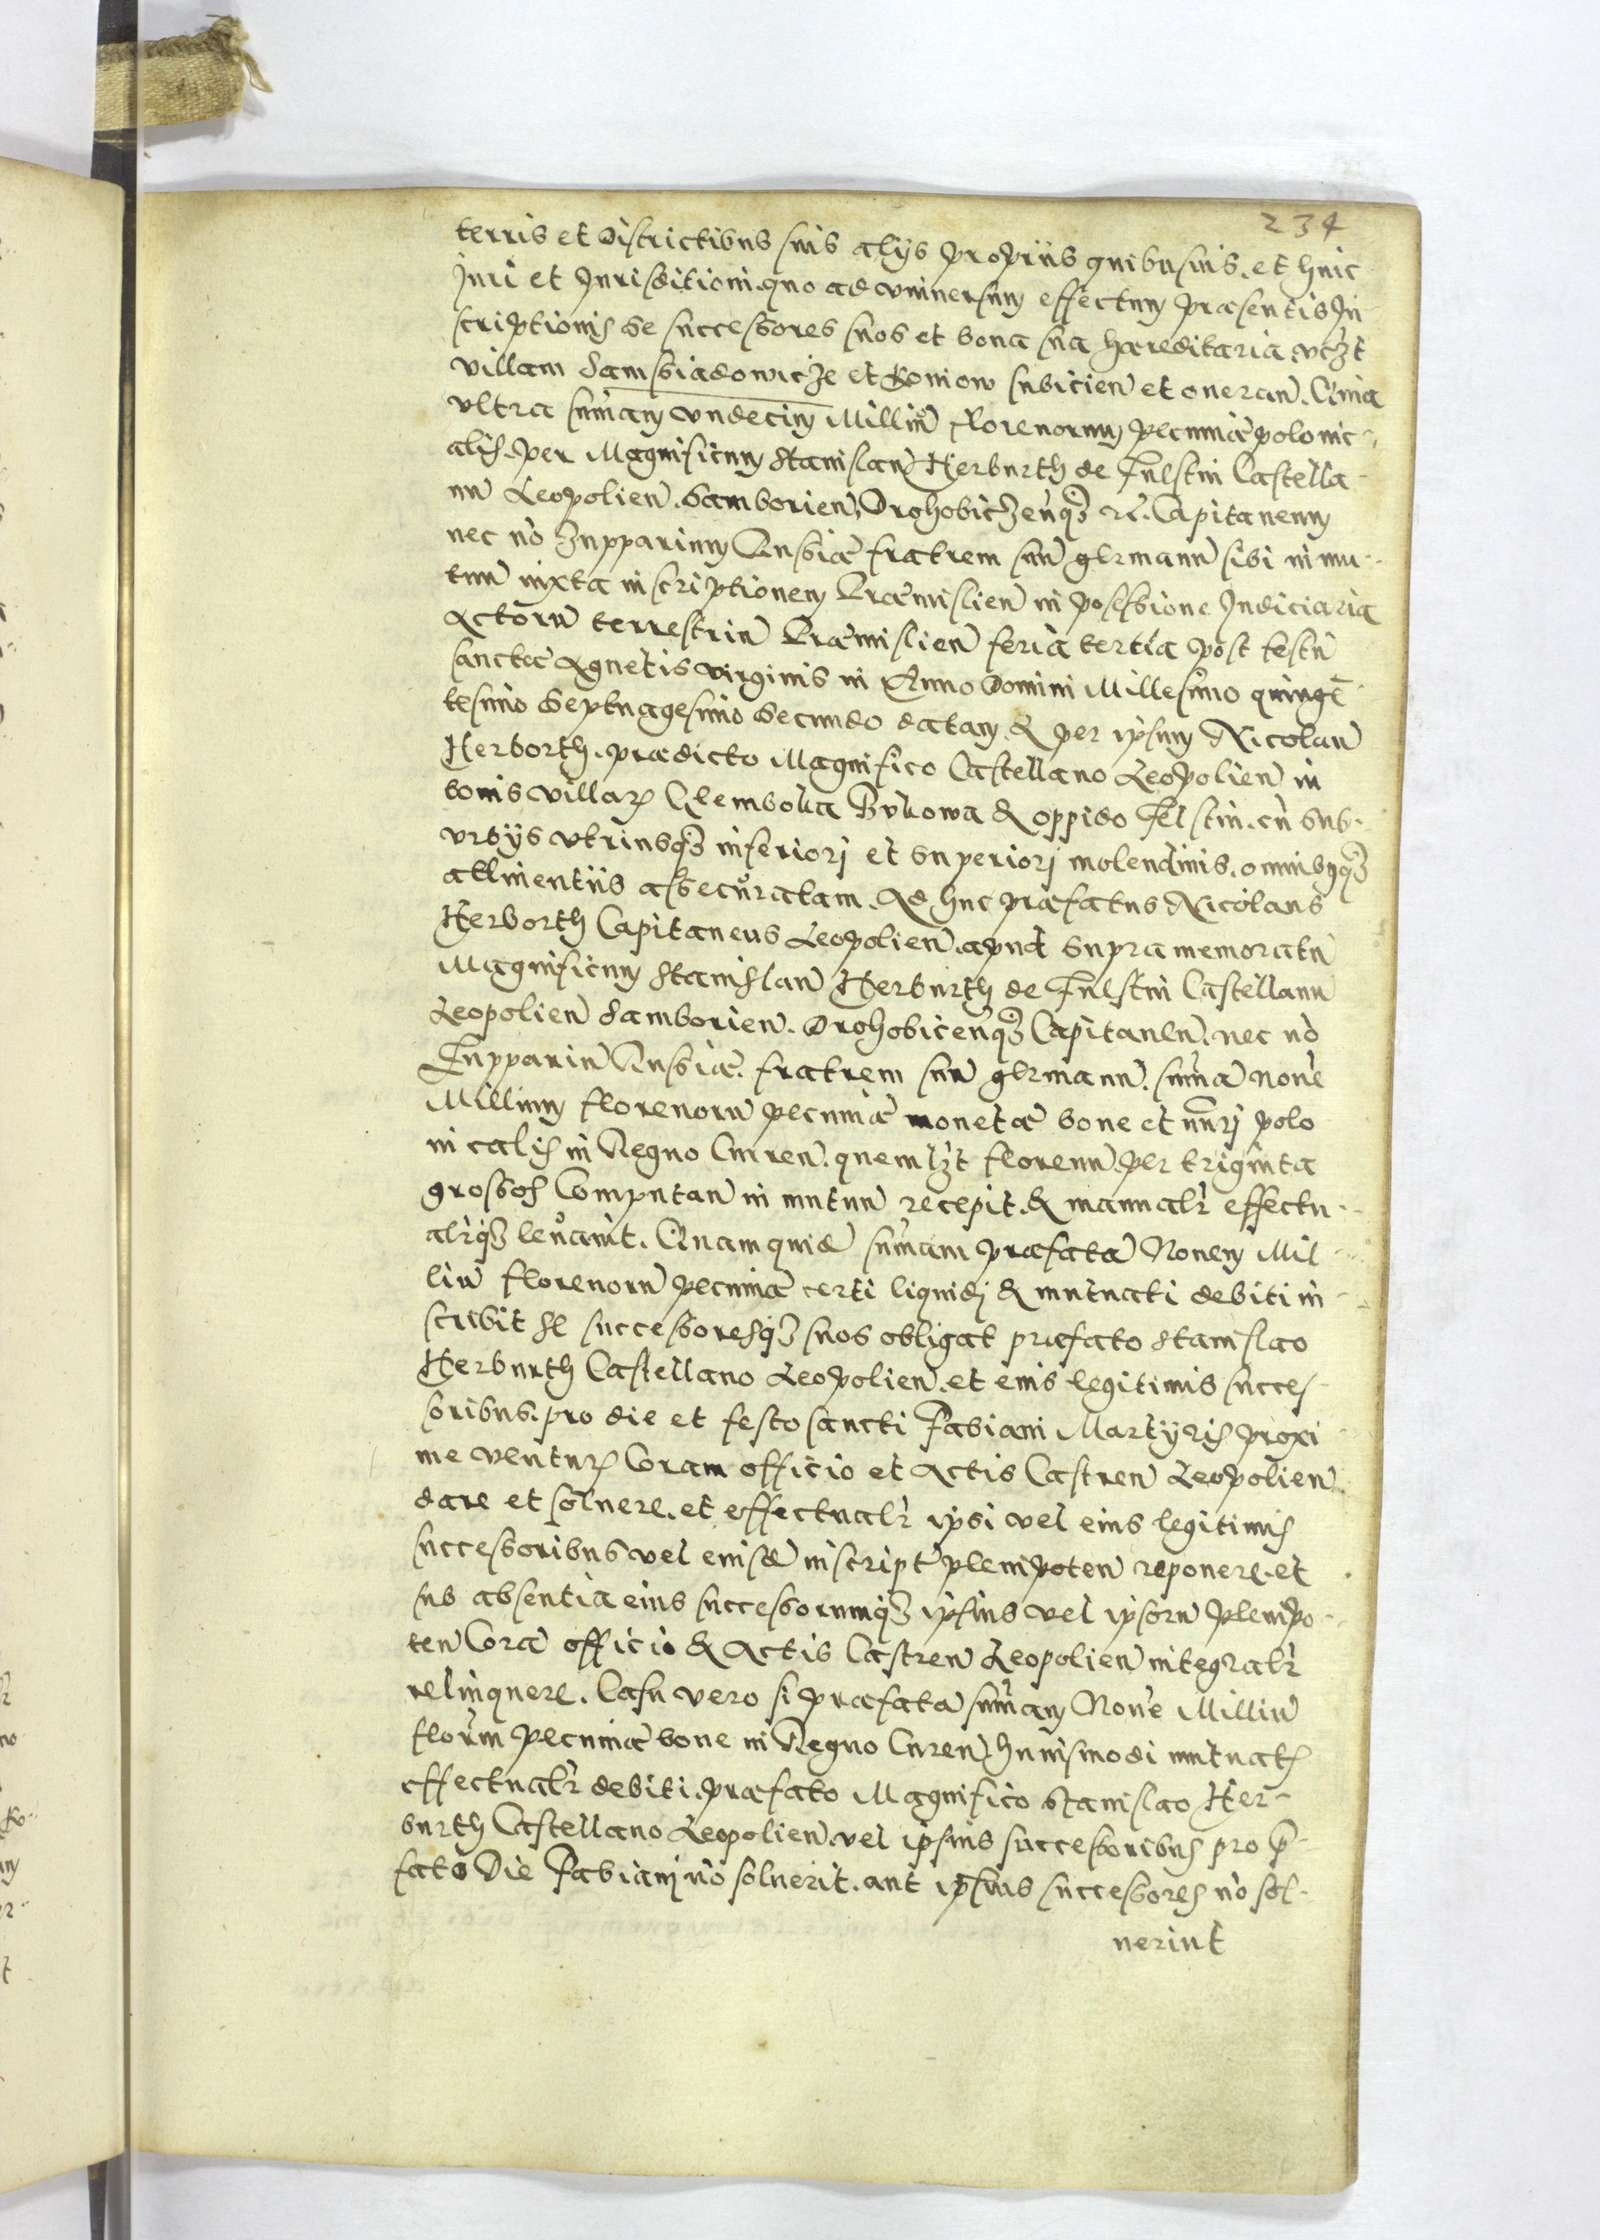 234
terris et districtibus suis alijs proprijs quibusuis. et huic
Juri et Jurisditioni. quo ad vniuersum effectum præsentis In-
scriptionis se successores suos et bona sua hæreditaria. vczt
villam Samsiadowicze et Koniow subicien̄ et oneran̄. Quia
vltra sum̄am vndecim Milliū florenorum pecuniæ polonic-
alis. per Magnificum Stanislaū Herburth de Fulstin Castella-
nū Leopolien̄. Samborien̄, Drohobiczen̄qȝ etc. Capitaneum
nec nō Zupparium Russiæ fratrem suū germanū sibi in mu-
tuū iuxta inscriptionem Præmislien̄ in possessione Judiciaria
Actorū terrestriū Præmislien̄ feria tertia post festū
sanctæ Agnetis virginis in Anno Domini Millesimo quingē-
tesimo Septuagesimo Secundo datam. & per ipsum Nicolaū
Herborth. prædicto Magnifico Castellano Leopolien̄ in
bonis villarū Glemboka Bukowa & oppido Felstin. cū sub-
urbijs vtriusqȝ inferiorj et superiorj molendinis. omnibusqȝ
attinentijs assecuratam. Ad huc præfatus Nicolaus
Herborth Capitaneus Leopolien̄. apud supra memoratū
Magnificum Stanislaū Herburth de Fulstin Castellanū
Leopolien̄ Samborien̄. Drohobicen̄qȝ Capitaneū. nec nō
Zuppariū Russiæ. fratrem suū germanū. sum̄ā Nouē
Millium florenorū pecuniæ monetæ bone et nūrj polo
nicalis in Regno Curren̄. quemlzt florenū. per triginta
grossos Computan̄ in mutuū recepit. & manualr̄ effectu-
alr̄qȝ leuauit. Quam quidē sum̄am præfatā Nouem Mil-
liū florenorū pecuniæ certi liquidj & mutuati debiti in-
scribit se successoresqȝ suos obligat præfato Stanislao
Herburth Castellano Leopolien̄. et eius legitimis succes-
soribus. pro die et festo sancti Fabiani Martyris proxi
me ventur̄ Coram officio et Actis Castren̄ Leopolien̄
dare et soluere. et effectualr̄ ipsi vel eius legitimis
successoribus vel eiusdē inscript̄ plenipoten̄ reponere. et
sub absentia eius successorumqȝ ipsius vel ipsorū plenipo-
ten̄ Corā officio & Actis Castren̄ Leopolien̄ integralr̄
relinquere. Casu vero si præfatā sum̄am Nouē Milliū
florūm pecuniæ bone in Regno Curen̄. huiusmodi mutuati
effectualr̄ debiti. præfato Magnifico Stanislao Her-
burth Castellano Leopolien̄. vel ipsius successoribus pro p̄-
fato Die Fabianj nō soluerit. aut ipsius successores nō sol-
uerint